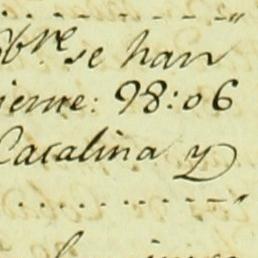 8bre se han
ieme: 98:06
Cacalina y